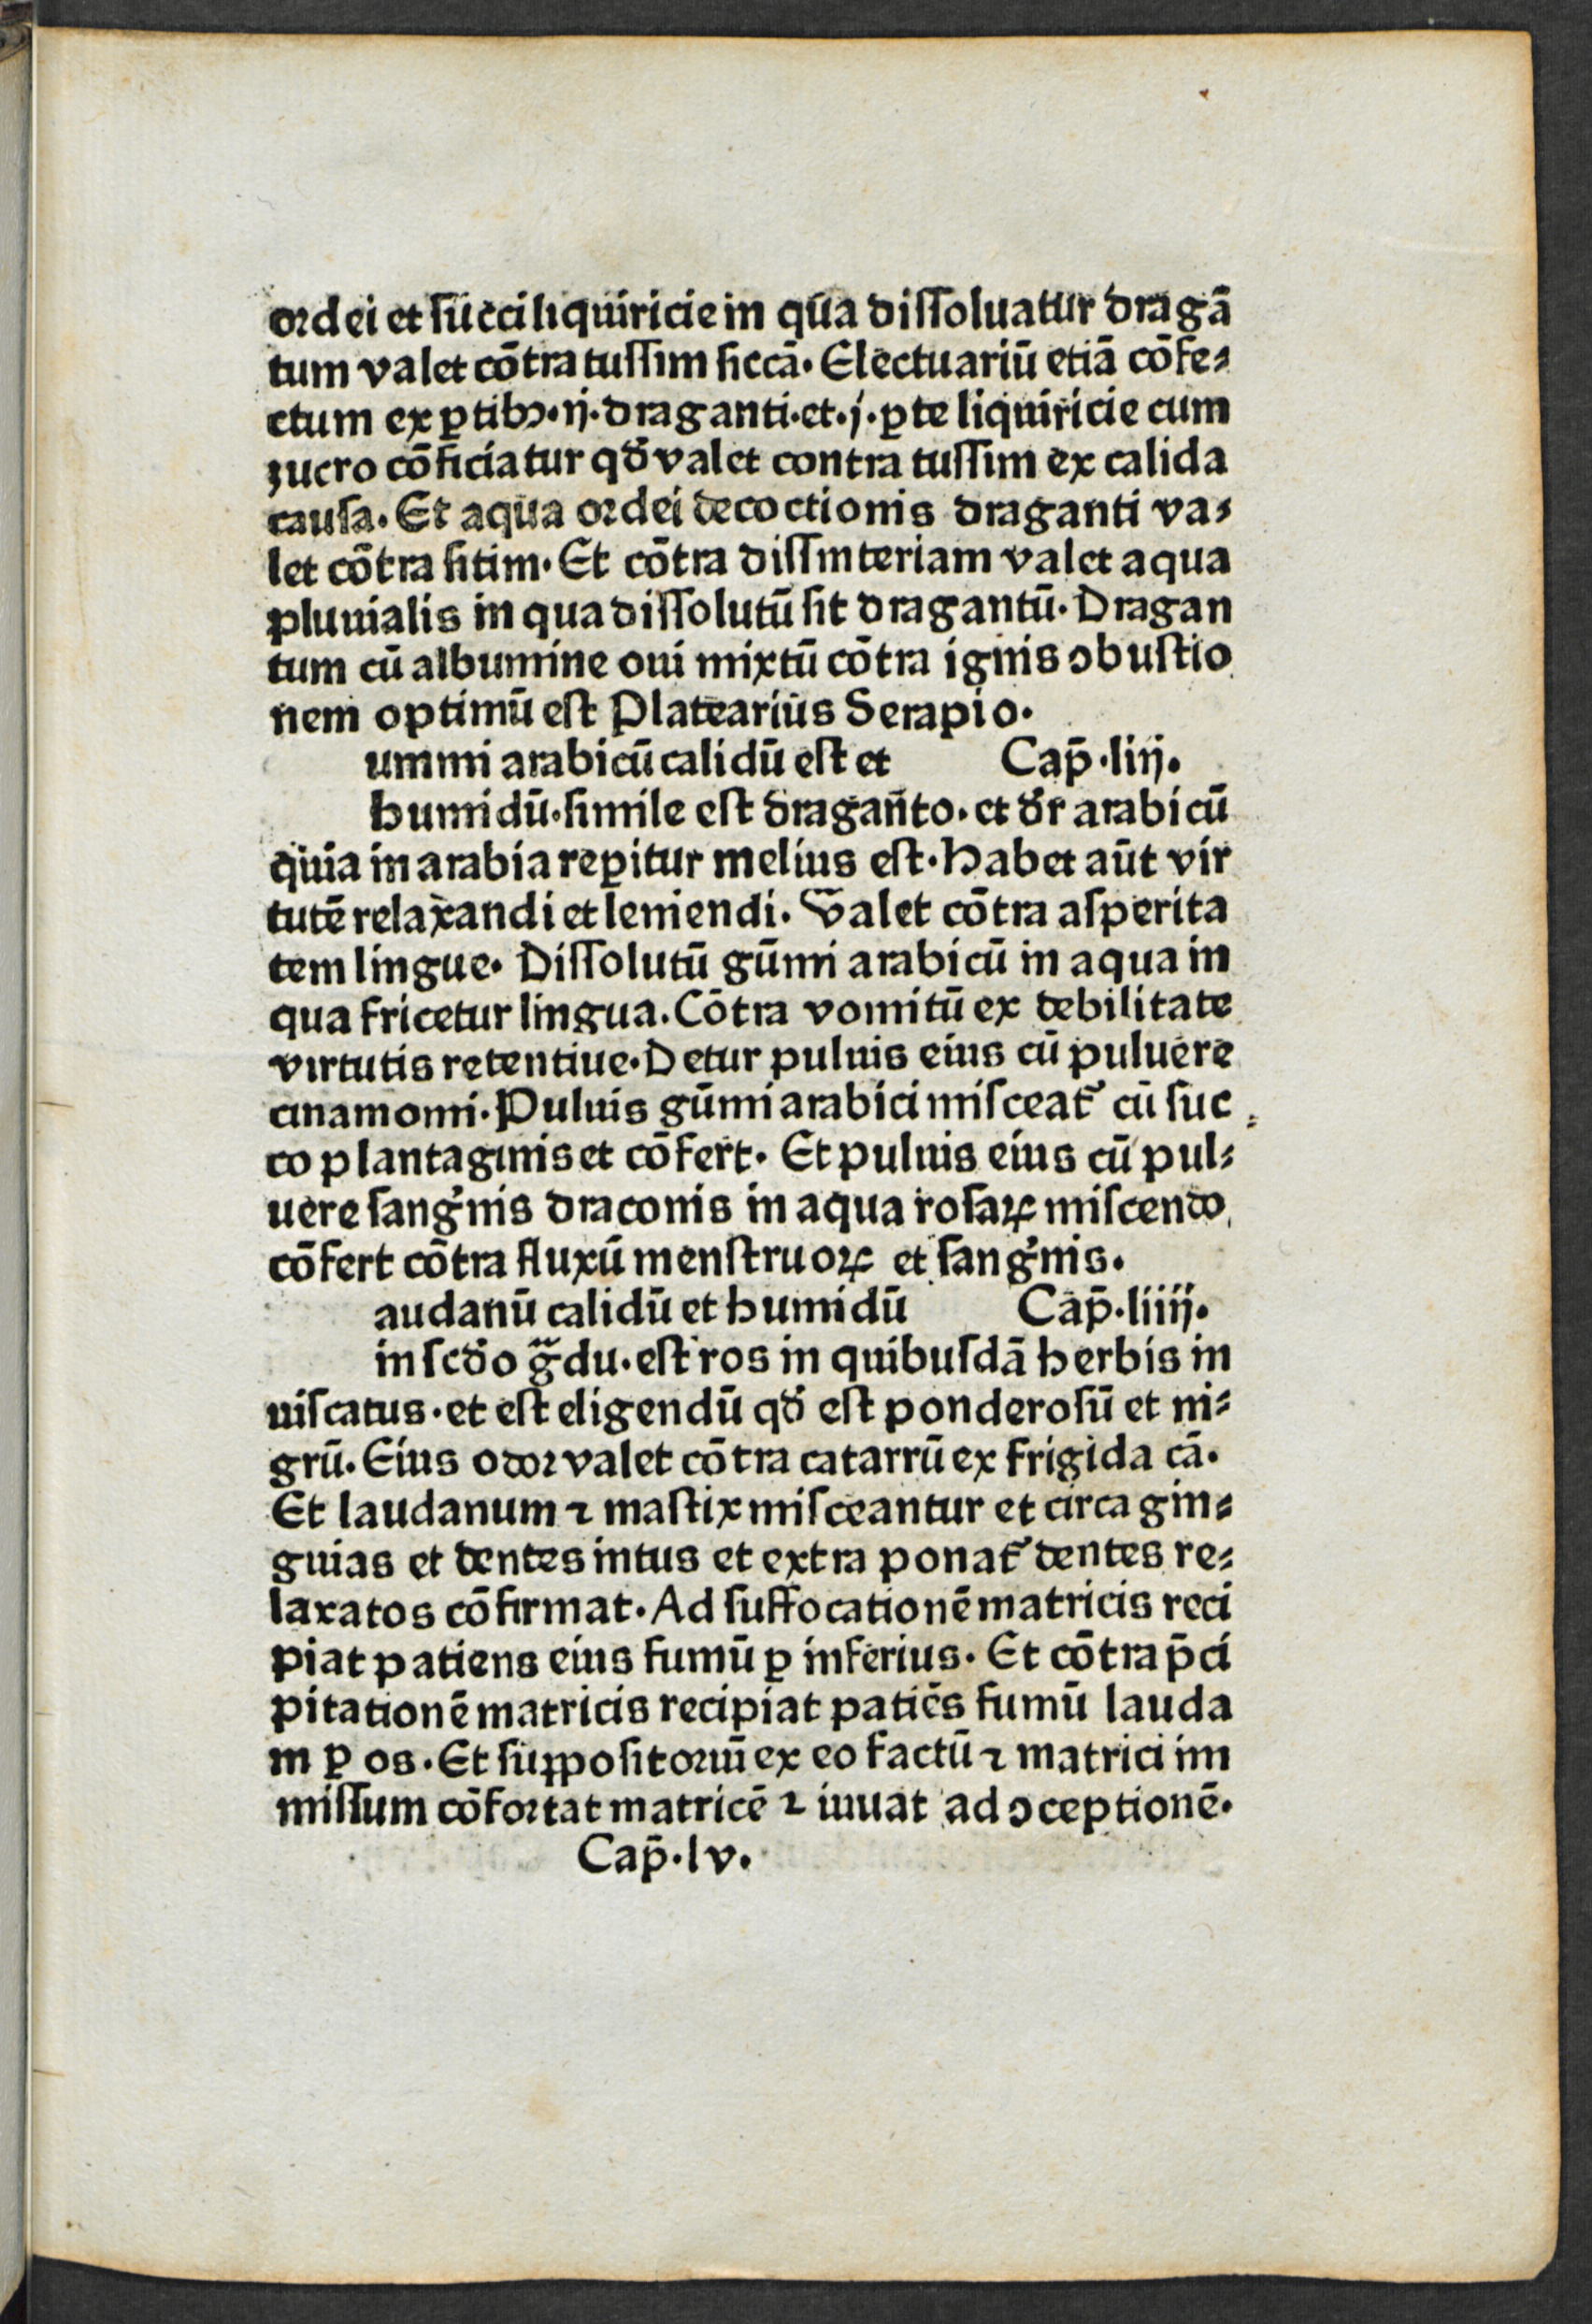 ordei et succi liquiricie in qua dissoluatur dragā
tum valet cōtra tussim siccā. Electuariū etiā cōfe⸗
ctum ex ꝑtibꝫ. ij. draganti. et. j. ꝑte liquiricie cum
zucro cōficiatur qđ valet contra tussim ex calida
causa. Et aqua ordei decoctionis draganti va⸗
let cōtra sitim. Et cōtra dissinteriam valet aqua
pluuialis in qua dissolutū sit dragantū. Dragan
tum cū albumine oui mixtū cōtra ignis ↄbustio
nem optimū est Platearius Serapio.
ummi arabicū calidū est et Cap̄. liij.
humidū. simile est draganto. et đr arabicū
quia in arabia reꝑitur melius est. Habet aūt vir
tutē relaxandi et leniendi. Valet cōtra asperita
tem lingue. Dissolutū gūmi arabicū in aqua in
qua fricetur lingua. Cōtra vomitū ex debilitate
virtutis retentiue. Detur puluis eius cū puluere
cinamomi. Puluis gūmi arabici misceat᷑ cū suc
co plantaginis et cōfert. Et puluis eius cū pul⸗
uere sang̍nis draconis in aqua rosaꝝ miscendo
cōfert cōtra fluxū menstruoꝝ et sang̍nis.
audanū calidū et humidū Cap̄. liiij.
in scđo gͣdu. est ros in quibusdā herbis in
uiscatus. et est eligendū qđ est ponderosū et ni⸗
grū. Eius odor valet cōtra catarrū ex frigida cā.
Et laudanum ⁊ mastix misceantur et circa gin⸗
guias et dentes intus et extra ponat᷑ dentes re⸗
laxatos cōfirmat. Ad suffocationē matricis reci
piat patiens eius fumū ꝑ inferius. Et cōtra p̄ci
pitationē matricis recipiat patiēs fumū lauda
ni ꝑ os. Et suppositoriū ex eo factū ⁊ matrici im
missum cōfortat matricē ⁊ iuuat ad ↄceptionē.
Cap̄. lv.